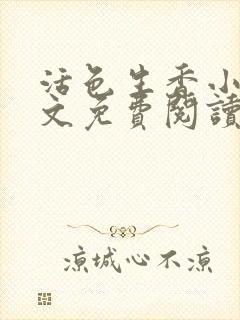 活色生香小
文免費閱讀
凉城心不凉